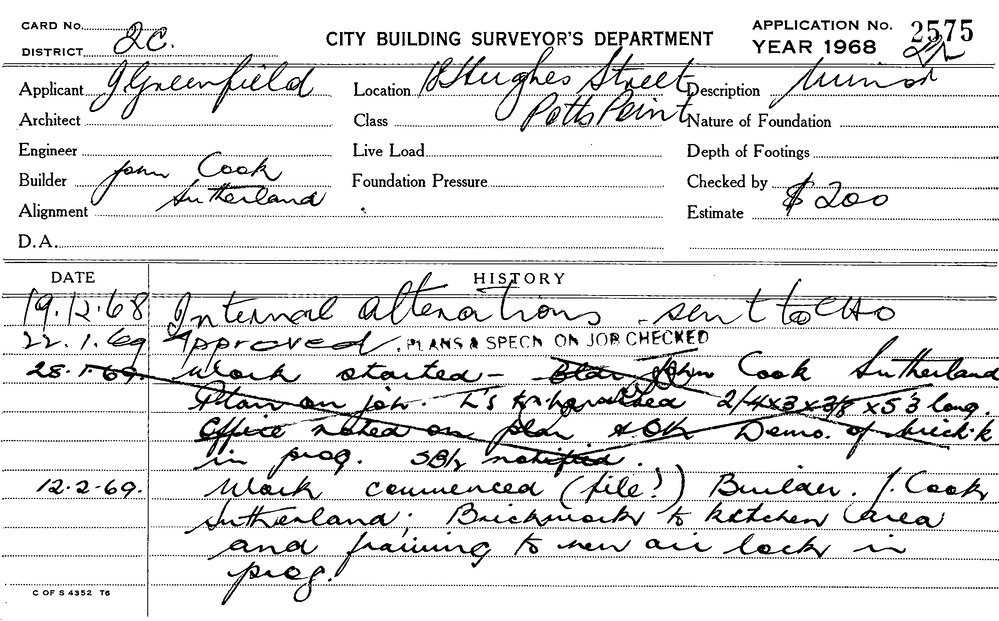 CARD No.
DISTRICT 2C.
CITY BUILDING SURVEYOR'S DEPARTMENT
APPLICATION No. 2575
YEAR 1968
Applicant J Greenfield
Location 18 Hughes Street
Potts Point
Description Minor
Architect
Class
Nature of Foundation
Engineer
Live Load
Depth of Footings
Builder John Cook
Sutherland
Foundation Pressure
Checked by
Alignment
Estimate $200
D.A.
DATE HISTORY
19.12.68 Internal alterations sent to CHO
22.1.69 Approved. PLANS & SPECN ON JOB CHECKED
28.1.69 Work started - Bldr John Cook Sutherland
Plan on job. L's 2/4x3x3/8 x 5'3 long.
Office noted on plan & OK Demo. of brick-k
in prog. notified.
12.2.69. Work commenced (file!) Builder. J. Cook
Sutherland; Brickwork to kitchen area
and framing to new air lock in
prog.
C OF S 4352 T6